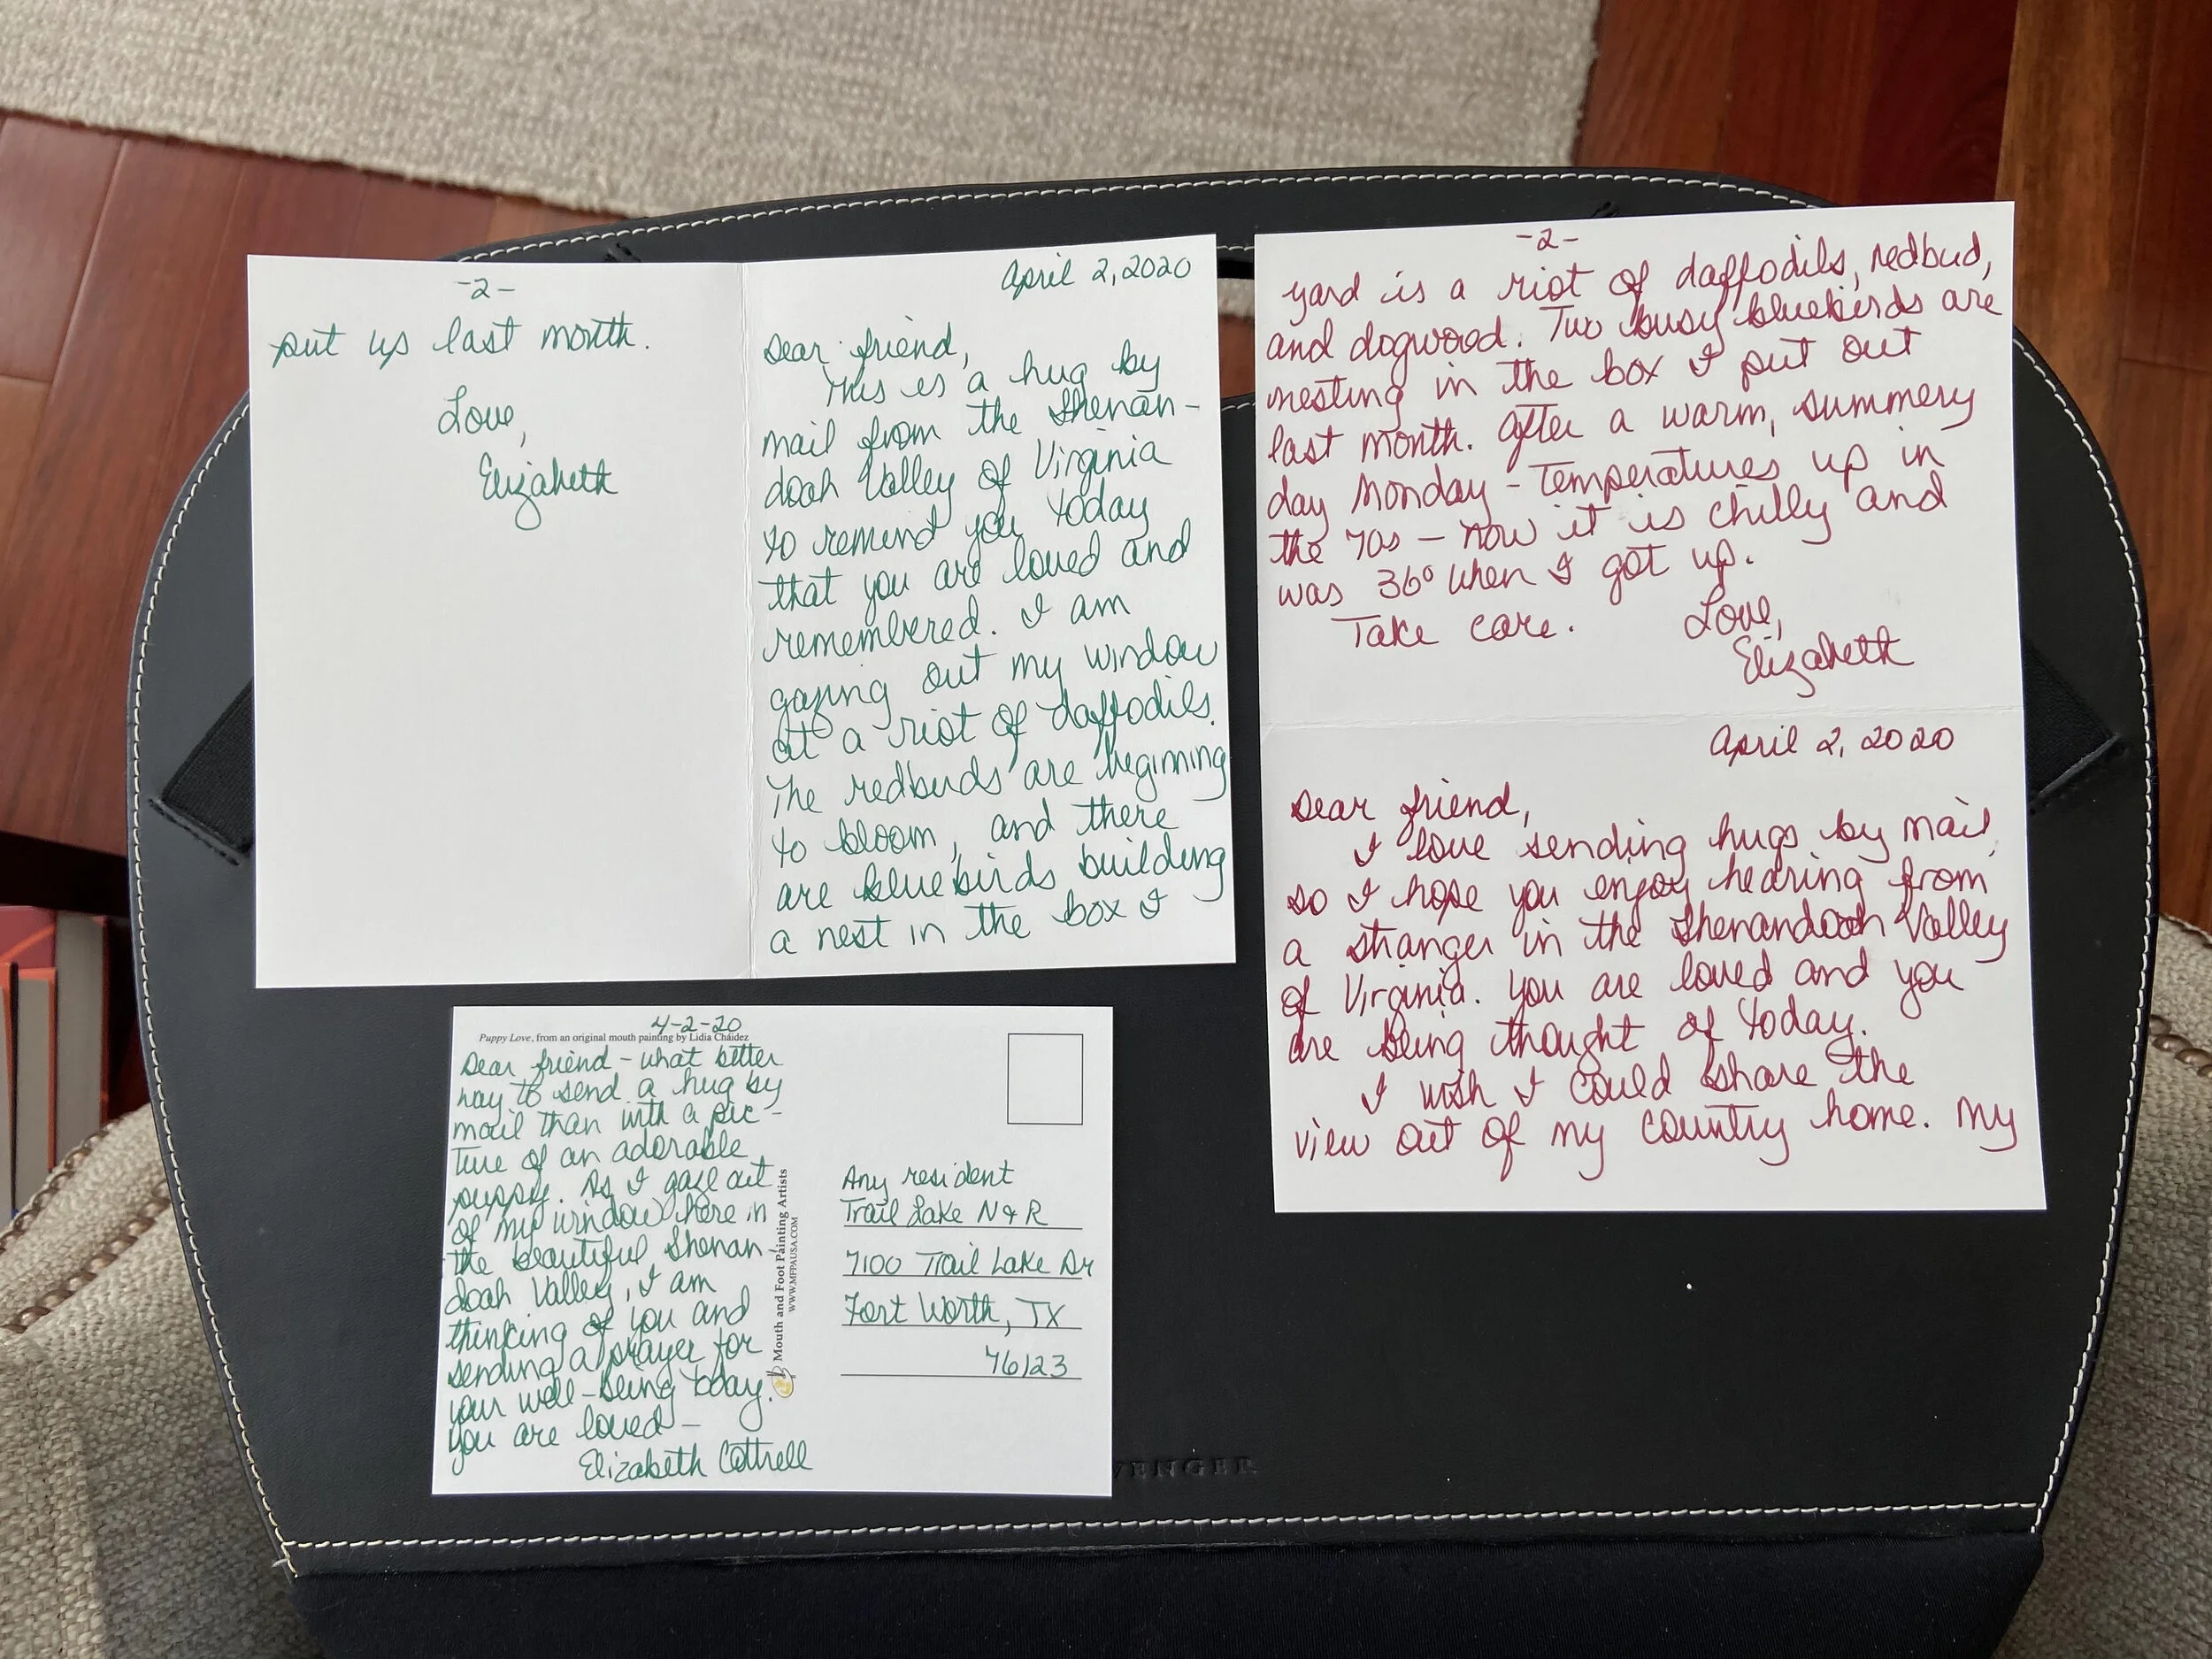 April 2, 2020
Dear friend,
This is a hug by
mail from the Shenan-
doah Valley of Virginia
to remind you today
that you are loved and
remembered. I am
gazing out my window
at a riot of daffodils.
The redbuds are beginning
to bloom, and there
are bluebirds building
a nest in the box I
-2-
put up last month.
Love,
Elizabeth
April 2, 2020
Dear friend,
I love sending hugs by mail,
so I hope you enjoy hearing from
a stranger in the Shenandoah Valley
of Virginia. You are loved and you
are being thought of today.
I wish I could share the
view out of my country home. My
-2-
yard is a riot of daffodils, redbud,
and dogwood. Two busy bluebirds are
nesting in the box I put out
last month. After a warm, summery
day Monday - temperatures up in
the 70s - now it is chilly and
was 36° when I got up.
Take care.
Love,
Elizabeth
4-2-20
Puppy Love, from an original mouth painting by Lidia Chaidez
Dear friend - what better
way to send a hug by
mail than with a pic-
ture of an adorable
puppy. As I gaze out
of my window here in
the beautiful Shenan-
doah Valley, I am
thinking of you and
sending a prayer for
your well-being today.
You are loved -
Elizabeth Cottrell
Mouth and Foot Painting Artists
WWW.MFPAUSA.COM
Any resident
Trail Lake N & R
7100 Trail Lake Dr
Fort Worth, TX
76123